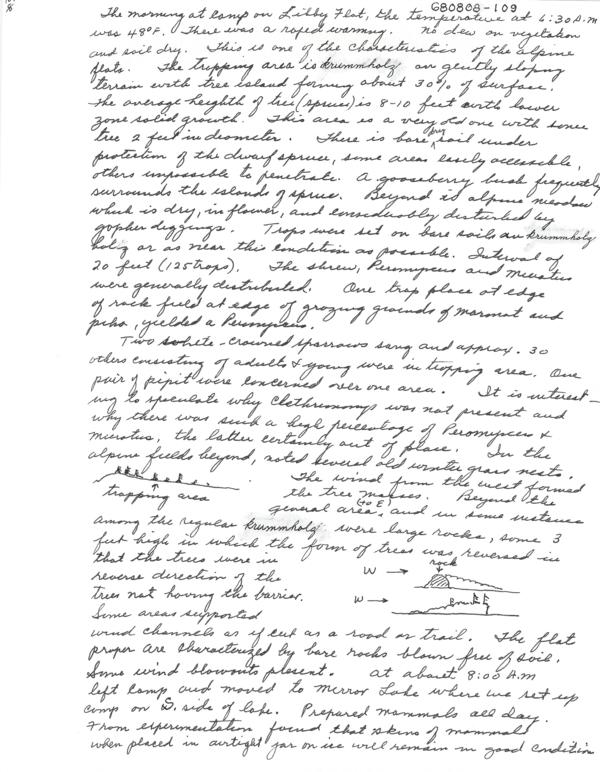 G80808-109
The morning at camp on Libby Flat, the temperature at 6:30 A.M
was 48°F. There was a rapid warming. No dew on vegetation
and soil dry. This is one of the characteristics of the alpine
flats. The trapping area is krummholz on gently sloping
terrain with tree island forming about 30% of surface.
The average heighth of tree (spruce) is 8-10 feet with lower
zone solid growth. This area is a very old one with some
tree 2 feet in diameter. There is bare dry soil under
protection of the dwarf spruce, some areas easily accessible,
others impossible to penetrate. A gooseberry bush frequently
surrounds the islands of spruce. Beyond is alpine meadow
which is dry, in flower, and considerably disturbed by
gopher diggings. Traps were set on bare soils in krummholz
holz or as near this condition as possible. Interval of
20 feet (125 traps). The shrew, Peromyscus and Microtus
were generally distributed. One trap place at edge
of rock field at edge of grazing grounds of marmot and
pika, yielded a Peromyscus.
Two white-crowned sparrows sang and approx. 30
others consisting of adults & young were in trapping area. One
pair of pipit were concerned over one area. It is interest-
ing to speculate why Clethrionomys was not present and
why there was such a high percentage of Peromyscus &
Microtus, the latter certainly out of place. In the
alpine fields beyond, noted several old winter grass nests.
The wind from the west formed
trapping area
the tree masses. Beyond the
(to E)
general area, and in some instance
among the regular krummholz were large rocks, some 3
feet high in which the form of trees was reversed in
that the trees were in
rock
reverse direction of the
W →
trees not having the barrier.
W →
Some areas supported
wind channels as if cut as a road or trail. The flat
proper are characterized by bare rocks blown free of soil.
Some wind blowouts present. At about 8:00 A.M
left camp and moved to Mirror Lake where we set up
camp on S. side of lake. Prepared mammals all day.
From experimentation found that skins of mammals
when placed in airtight jar on ice will remain in good condition